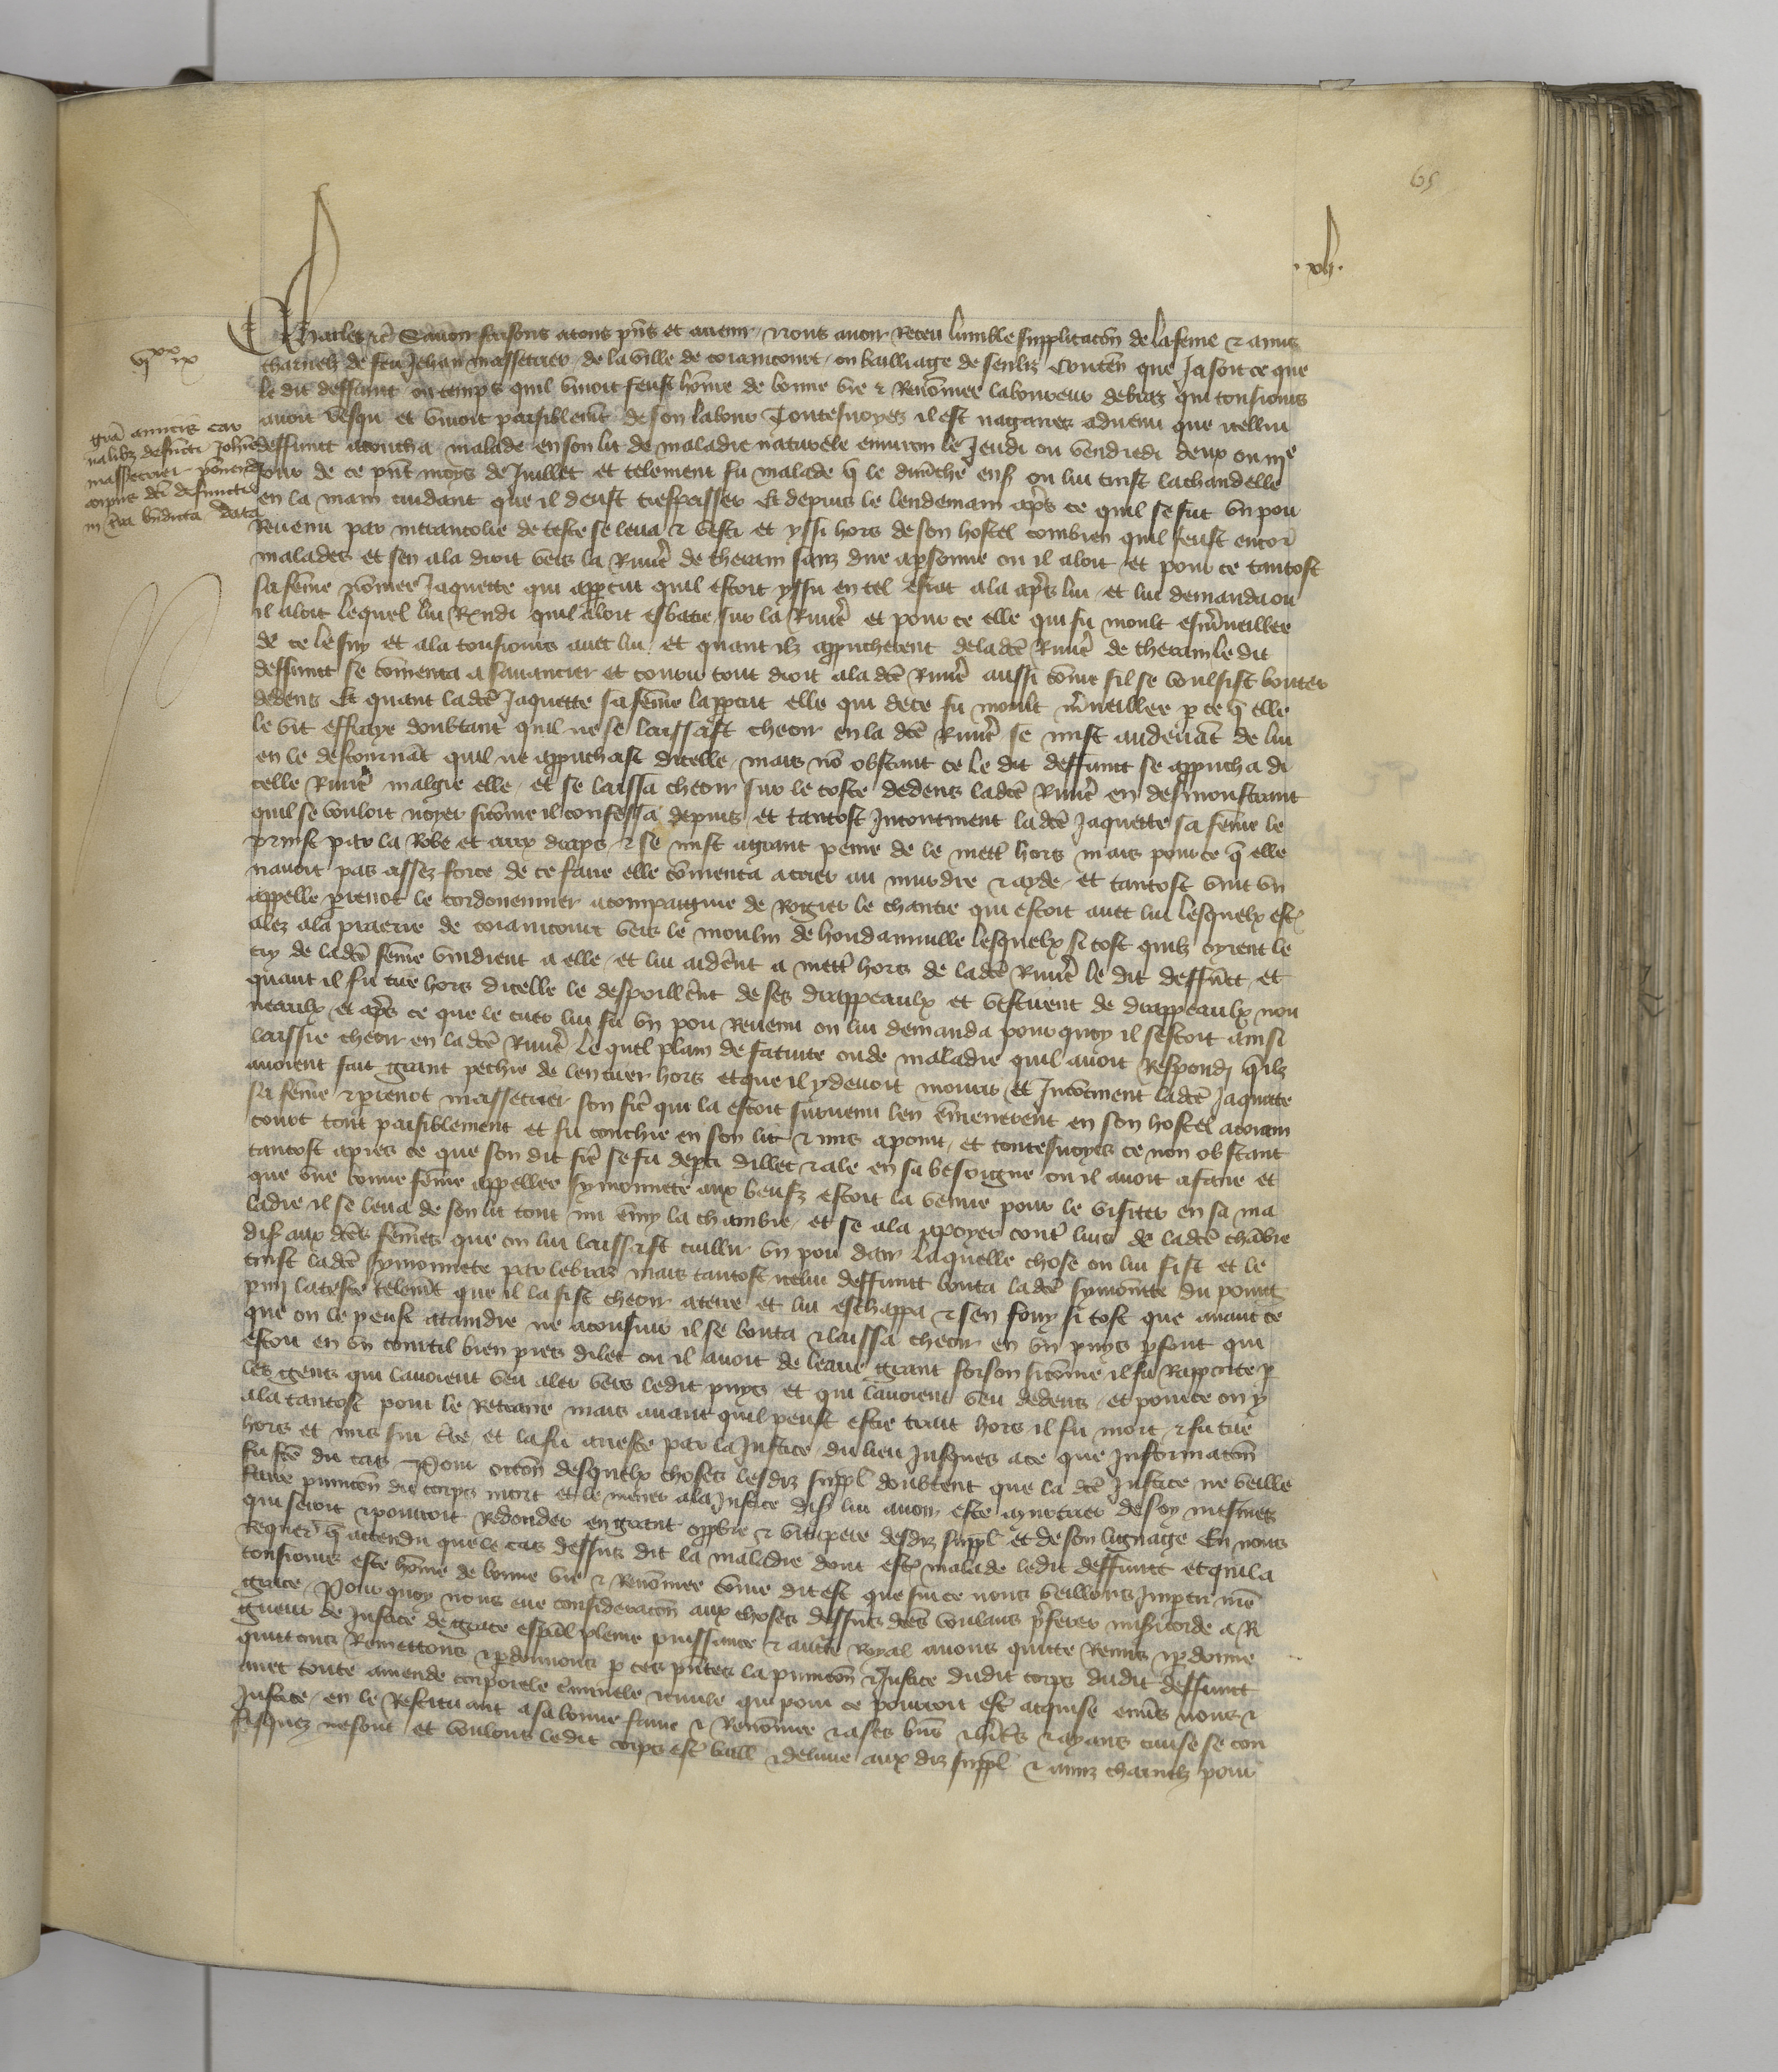 65
.vii.
Charles etc. Savoir faisons a tous pns et avenir nous avoir receu lumble supplicacion de la feme & amis
vixx ix
charnelz de feu Jehan Massetrier de la ville de coiamcourt ou bailliage de senliz Conten que Ja soit ce que
le dit deffunt ou temps quil vivoit feust home de bonne vie & Renomee laboureur de braz qui tousiours
avoit vesqu et vivoit paisiblemt de son labour Toutesvoyes il est nagaires advenu que icellui
gra amicis car
nalibz defuncti Johnis
massetrier ponendi
corpus dci defuncti
in tra bndicta data
deffunct acoucha malade en son lit de maladie naturele environ le Jeudi ou vendredi deux ou iiie
Jour de ce pnt moys de Juillet et telement fu malade q le dimche ens on lui tinst la chandelle
en la main cuidant que il deust trespasser Et depuis le lendemain aps ce quil se fut un pou
Revenu par merancolie de teste se leva & vesti et yssi hors de son hostel combien quil feust encor
malades et sen ala droit vers la Rivie de therain sanz dire a psonne ou il aloit et pour ce tantost
sa feme nomee Jaquette qui appcut quil estoit yssu en tel estat ala aps lui et lui demanda ou
il aloit lequel lui Rendi quil aloit esbatre sur la Rivie et pour ce elle qui fu moult esmveillee
de ce le suy et ala tousiours avec lui et quant ilz approcherent de la dce Rivie de therain le dit
deffunct se comenca a savancier et couru tout droit a la dce Rivie aussi come sil se voulsist bouter
dedens Et quant la dce Jaquette sa feme lappcut elle qui de ce fu moult mveillee p ce q elle
le vit effraye doubtant quil ne se laissast cheoir en la dce Rivie se mist au devat de lui
en le destournat quil ne approchast dicelle mais no obstant ce le dit deffunct se approcha di
celle Rivie malgre elle et se laissa cheoir sur le coste dedens la dce Rivie en desmonstrant
quil se vouloit noyer si come il confessa depuis et tantost Incontinent la dce Jaquette sa feme le
prinst par la Robe et aux draps & se mist a grant peine de le mett hors mais pour ce q elle
navoit pas assez force de ce faire elle comenca a crier au murdre & ayde et tantost vint un
appelle prenot le cordouennier acompaignie de Rogier le chantre qui estoit avec lui lesquelx est
alez a la praerie de coiamcourt vers le moulin de hondainville lesquelx si tost quilz oyrent le
cry de la dce feme vindrent a elle et lui aidernt a mett hors de la dce Rivie le dit deffunct et
quant il fu tire hors dicelle le despoillernt de ses drappeaulx et vestirent de drappeaulx nou
veaulx et aps ce que le cuer lui fu un pou Revenu on lui demanda pourquoy il sestoit ainsi
laissie cheoir en la dce Rivie Le quel plain de fatuite ou de maladie quil avoit Respondi quilz
avoient fait grant pechie de len tirer hors et que il y devoit mourir et Incotinent la dce Jaquette
sa feme & prenot massetrier son fre qui la estoit survenu len emenerent en son hostel a coiam
court tout paisiblement et fu couchie en son lit & mis a point et toutesvoyes ce non obstant
tantost apres ce que son dit fre se fu depti dillec & ale en sa besoigne ou il avoit a faire et
que une bonne feme appellee symonnete aux beufz estoit la venue pour le visiter en sa ma
ladie il se leva de son lit tout nu emy la chambre et se ala apoyer cont luis de la dce chabre
dist aux dces femes que on lui laissast cuillir un pou dair laquelle chose on lui fist et le
tinst la dce symonnete par le bras mais tantost icelui deffunct bouta la dce symonette du poing
pmi la teste telemt que il la fist cheoir a terre et lui eschappa & sen fouy si tost que avant ce
que on le peust ataindre ne aconsuir il se bouta & laissa cheoir en un puys psont qui
estoit en un courtil bien pres dilec ou il avoit de leaue grant foison si come il fu Rapporte p
les gens qui lavoient veu aler vers ledit puys et qui lavoient veu dedens et pour ce on y
ala tantost pour le Retraire mais avant quil peust estre trait hors il fu mort & fu tire
hors et mis sur tre et la fu arreste par la Justice du lieu Jusques a ce que Informacon
fu fce du cas Pour occon desquelx choses lesdiz suppl doubtent que la dce Justice ne veille
faire punicon du corps mort et le mener a la Justice dist lui avoir este murtrier de soy mesmes
qui seroit & pourroit Redonder en grant oppbre & vitupere desdiz suppl et de son lignage En nous
Requer q attendu que le cas dessus dit la maladie dont est malade ledit deffunct et quil a
tousiours este home de bonne vie & Renomee come dit est que sur ce nous veillons Imptir nre
grace Pour quoy nous eue consideracon aux choses dessus dces voulans pferer misericorde a Ri
gueur de Justice de grace espal pleine puissance & aucte Royal avons quitte Remis & pdonne
quittons Remettons & pdonnons p ces pntes la punicon & Justice dudit corps dudit deffunct
avec toute amende corporele criminele & civile qui pour ce pourroit est acquise envs nous &
Justice en le Restituant a sa bonne fame & Renomee & a ses bns & hirs & ayans cause se con
fisquez ne sont et voulons ledit corps est baill & delivre aux diz suppl & amiz charnelz pour